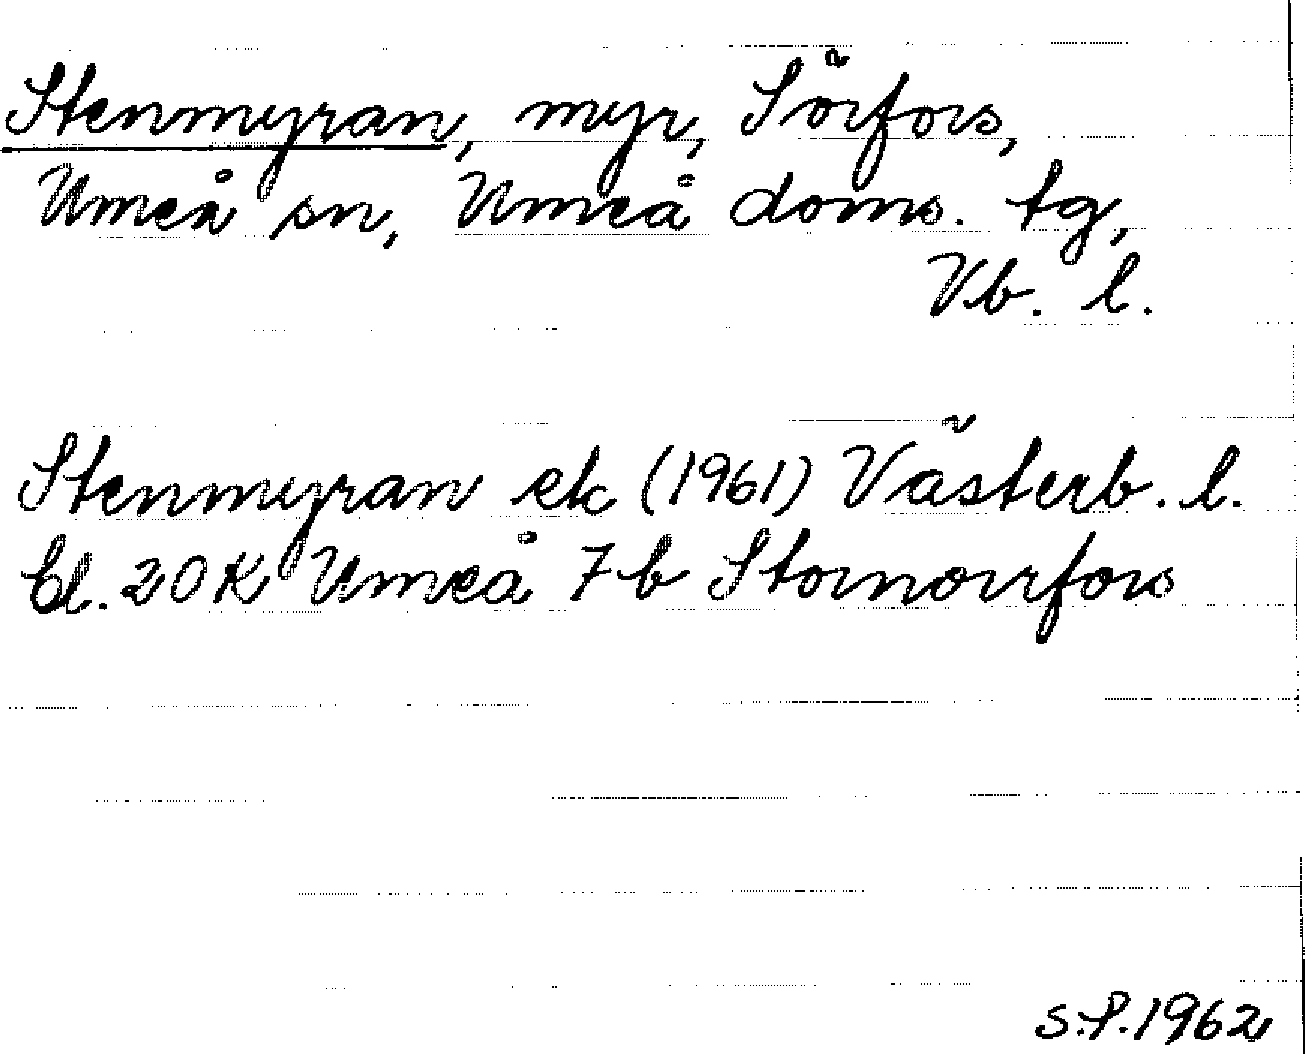 Stenmyran, myr, Sörfors,
Umeå sn, Umeå doms. tg,
Vb. l.
Stenmyran ek (1961) Västerb. l.
bl. 20 K Umeå 7 b Stornorrfors
S.P. 1962